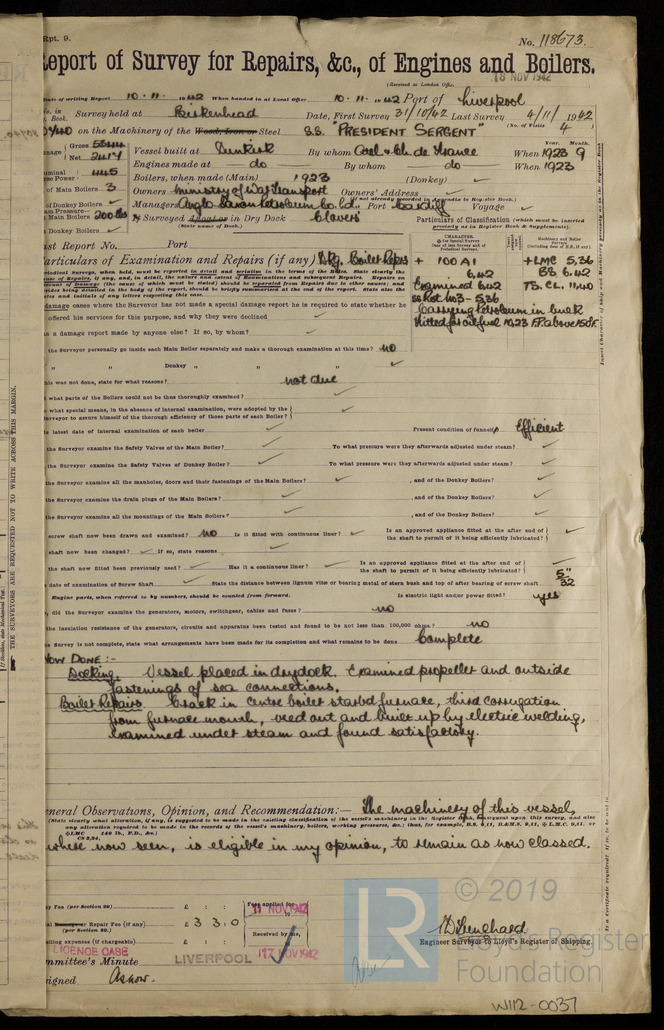 Rpt. 9.
No. 118673.
Report of Survey for Repairs, &c., of Engines and Boilers.
(Received at London Office
18 NOV 1942
Date of writing Report 10.11.1942 When handed in at Local Office 10.11.1942 Port of Liverpool
No. in Book. Survey held at Birkenhead Date, First Survey 31/10/42 Last Survey 4/11/1942
(No. of Visits 4)
on the Machinery of the Wood, Iron or Steel S.S. "PRESIDENT SERGENT"
Gross 5344
Net 2417
Vessel built at Dunkirk By whom Atel. & Ch. de France When 1923 9
Year. Month.
Engines made at do By whom do When 1923
Nominal Horse Power 445
Boilers, when made (Main) 1923 (Donkey) ✓
of Main Boilers 3
Owners Ministry of War Transport Owners' Address ✓
(If not already recorded in Appendix to Register Book.)
of Donkey Boilers ✓
Managers Anglo Saxon Petroleum Co. Ld. Port Cardiff Voyage ✓
Steam Pressure—
Main Boilers 200 lbs
Donkey Boilers ✓
If Surveyed Afloat or in Dry Dock Clovers'
(State name of Dock.)
Particulars of Classification (which must be inserted
precisely as in Register Book & Supplements).
Last Report No. Port
Particulars of Examination and Repairs (if any) Dkg. Boiler Repairs
+ 100 A1
6,42
Examined 6.42
SS Rot. No 3 - 5.36
Carrying Petroleum in bulk
Fitted for oil fuel 10.23 F.P. above 150°F
+ LMC 5,36
BS 6.42
TS. CL. 11.40
Periodical Surveys, when held, must be reported in detail and seriatim in the terms of the Rules. State clearly the
cause of Repairs, if any, and, in detail, the nature and extent of Examinations and subsequent Repairs. Repairs on
account of Damage (the cause of which must be stated) should be separated from Repairs due to other causes; and
dates and initials of any letters respecting this case.
damage cases where the Surveyor has not made a special damage report he is required to state whether he
offered his services for this purpose, and why they were declined ✓
a damage report made by anyone else? If so, by whom? ✓
the Surveyor personally go inside each Main Boiler separately and make a thorough examination at this time? no
" " Donkey " " " ✓
this was not done, state for what reasons? not due
what parts of the Boilers could not be thus thoroughly examined? ✓
what special means, in the absence of internal examination, were adopted by the
Surveyor to assure himself of the thorough efficiency of those parts of each Boiler? ✓
latest date of internal examination of each boiler ✓ Present condition of funnel(s) Efficient
the Surveyor examine the Safety Valves of the Main Boiler? ✓ To what pressure were they afterwards adjusted under steam? ✓
the Surveyor examine the Safety Valves of Donkey Boiler? ✓ To what pressure were they afterwards adjusted under steam? ✓
the Surveyor examine all the manholes, doors and their fastenings of the Main Boilers? ✓, and of the Donkey Boilers? ✓
the Surveyor examine the drain plugs of the Main Boilers? ✓, and of the Donkey Boilers? ✓
the Surveyor examine all the mountings of the Main Boilers? ✓, and of the Donkey Boilers? ✓
screw shaft now been drawn and examined? no Is it fitted with continuous liner? ✓ Is an approved appliance fitted at the after end of
the shaft to permit of it being efficiently lubricated? ✓
shaft now been changed? ✓ If so, state reasons ✓
the shaft now fitted been previously used? ✓ Has it a continuous liner? ✓ Is an approved appliance fitted at the after end of
the shaft to permit of it being efficiently lubricated? ✓
date of examination of Screw Shaft ✓ State the distance between lignum vitæ or bearing metal of stern bush and top of after bearing of screw shaft 5"/32
Engine parts, when referred to by numbers, should be counted from forward. Is electric light and/or power fitted? yes
did the Surveyor examine the generators, motors, switchgear, cables and fuses? no
the insulation resistance of the generators, circuits and apparatus been tested and found to be not less than 100,000 ohms? no
the Survey is not complete, state what arrangements have been made for its completion and what remains to be done Complete
NOW DONE :-
Docking. Vessel placed in drydock. Examined propeller and outside
fastenings of sea connections.
Boiler Repairs. Crack in centre boiler starbd furnace, third corrugation
from furnace mouth, veed out and built up by electric welding,
examined under steam and found satisfactory.
General Observations, Opinion, and Recommendation:— The machinery of this vessel,
where now seen, is eligible in my opinion, to remain as now classed.
Fee (per Section 29) £ : :
Fee applied for 17 NOV 1942
Repair Fee (if any) £ 3 3. 0
(per Section 29.)
Travelling expenses (if chargeable) £ : :
Received by me,
17 NOV 1942
LICENCE CASE
LIVERPOOL
Committee's Minute
Assigned As now.
Engineer Surveyor to Lloyd's Register of Shipping.
THE SURVEYORS ARE REQUESTED NOT TO WRITE ACROSS THIS MARGIN.
LR
© 2019
Lloyd's Register
Foundation
W112-0037